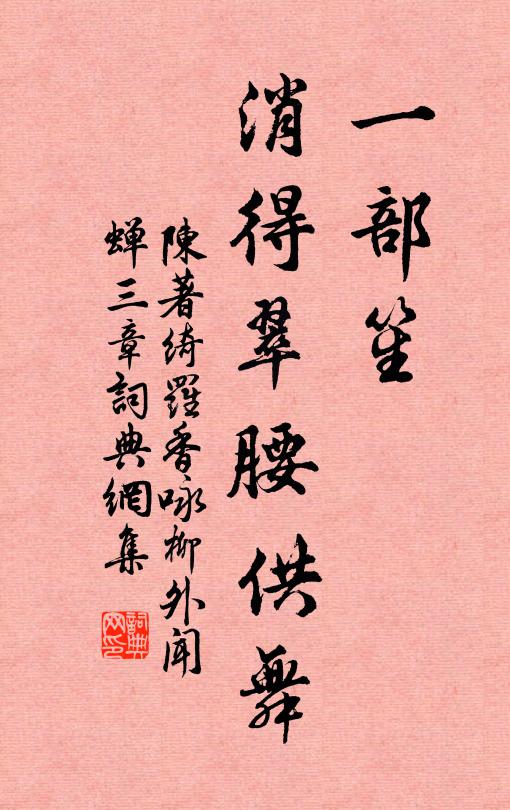 一部笙
消得翠腰供舞
陳著綺羅香咏柳外聞
蟬三章詞典網集
詞典
网印